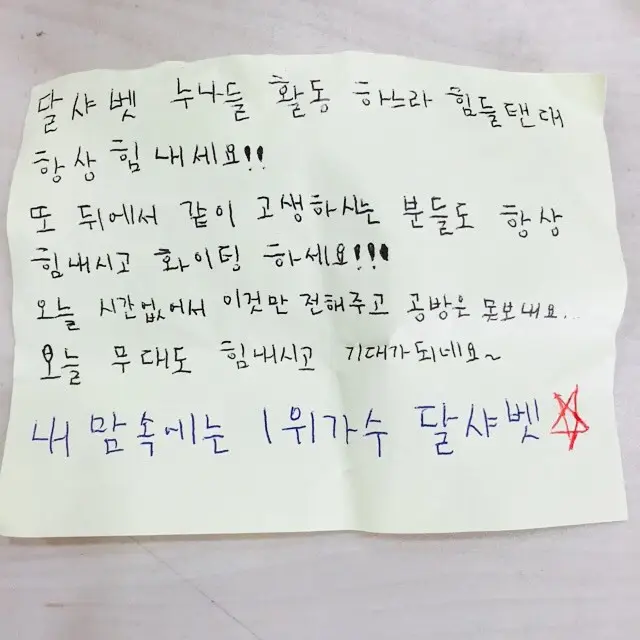 달샤벳 누나들 활동 하느라 힘들탠대
항상 힘 내세요!!
또 뒤에서 같이 고생하시는 분들도 항상
힘내시고 화이팅 하세요!!!
오늘 시간없어서 이것만 전해주고 공방은 못보내요...
오늘 무대도 힘내시고 기대가되네요~
내 맘속에는 1위가수 달샤벳